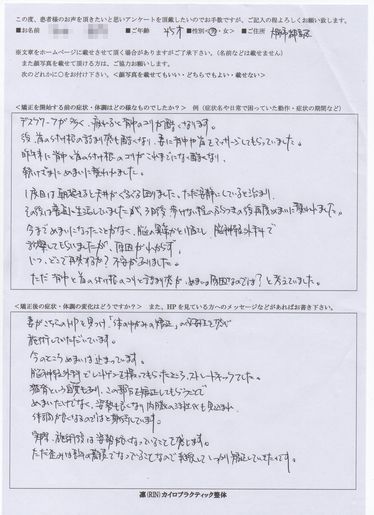 この度、患者様のお声を頂きたいと思いアンケートを頂戴したいのでお手数ですが、ご記入の程よろしくお願い致します。
■お名前 ■ご年齢 45才 ■性別(男・女) ■ご住所
※文章をホームページに載せさせて頂く場合がありますがご了承下さい。(名前などは載せません)
また顔写真を載せて頂ける方は、ご協力お願いします。
次のどれかに○をお付け下さい。<顔写真を載せてもいい・どちらでもよい・載せない>
<矯正を開始する前の症状・体調はどの様なものでしたか？> 例（症状名や日常で困っていた動作・症状の期間など）
デスクワークが多く、疲れると背中のコリが酷くなります。
後、首の付け根の詰まり感も酷くなり、妻に背中や首をマッサージしてもらっていました。
昨年末に背中と首の付け根のコリがこれまでになく酷くなり、
朝いきなりめまいに襲われました。
1度目は朝起きると天井がぐるぐる回りました。ただ安静にしていると治まり、
その後は普通に生活していましたが、
今までめまいになったことがなく、脳の異常かと心配し、脳神経外科で
診察してもらいましたが、原因がわからず、
いつ、どこで再発するか？不安がありました。
ただ背中と首の付け根のコリと詰まり感が、めまいの原因なのでは？と考えていました。
<矯正後の症状・体調の変化はどうですか？> また、HPを見ている方へのメッセージなどがあればお書き下さい。
妻がこちらのHPを見つけ、「体のゆがみの矯正」の必要性を感じ
施術していただいています。
今のところめまいは止まっています。
脳神経外科でレントゲンを撮ってもらったところ、ストレートネックでした。
猫背という自覚もあり、この部分も矯正してもらうことで
めまいだけでなく、姿勢も良くなり内臓の活性化も見込まれ、
体調が良くなるのではと期待しています。
実際、施術後は姿勢が良くなっていることを感じます。
ただ歪みは長年の蓄積でなっていることなので継続してしっかり矯正していきたいです。
凛(RIN)カイロプラクティック整体